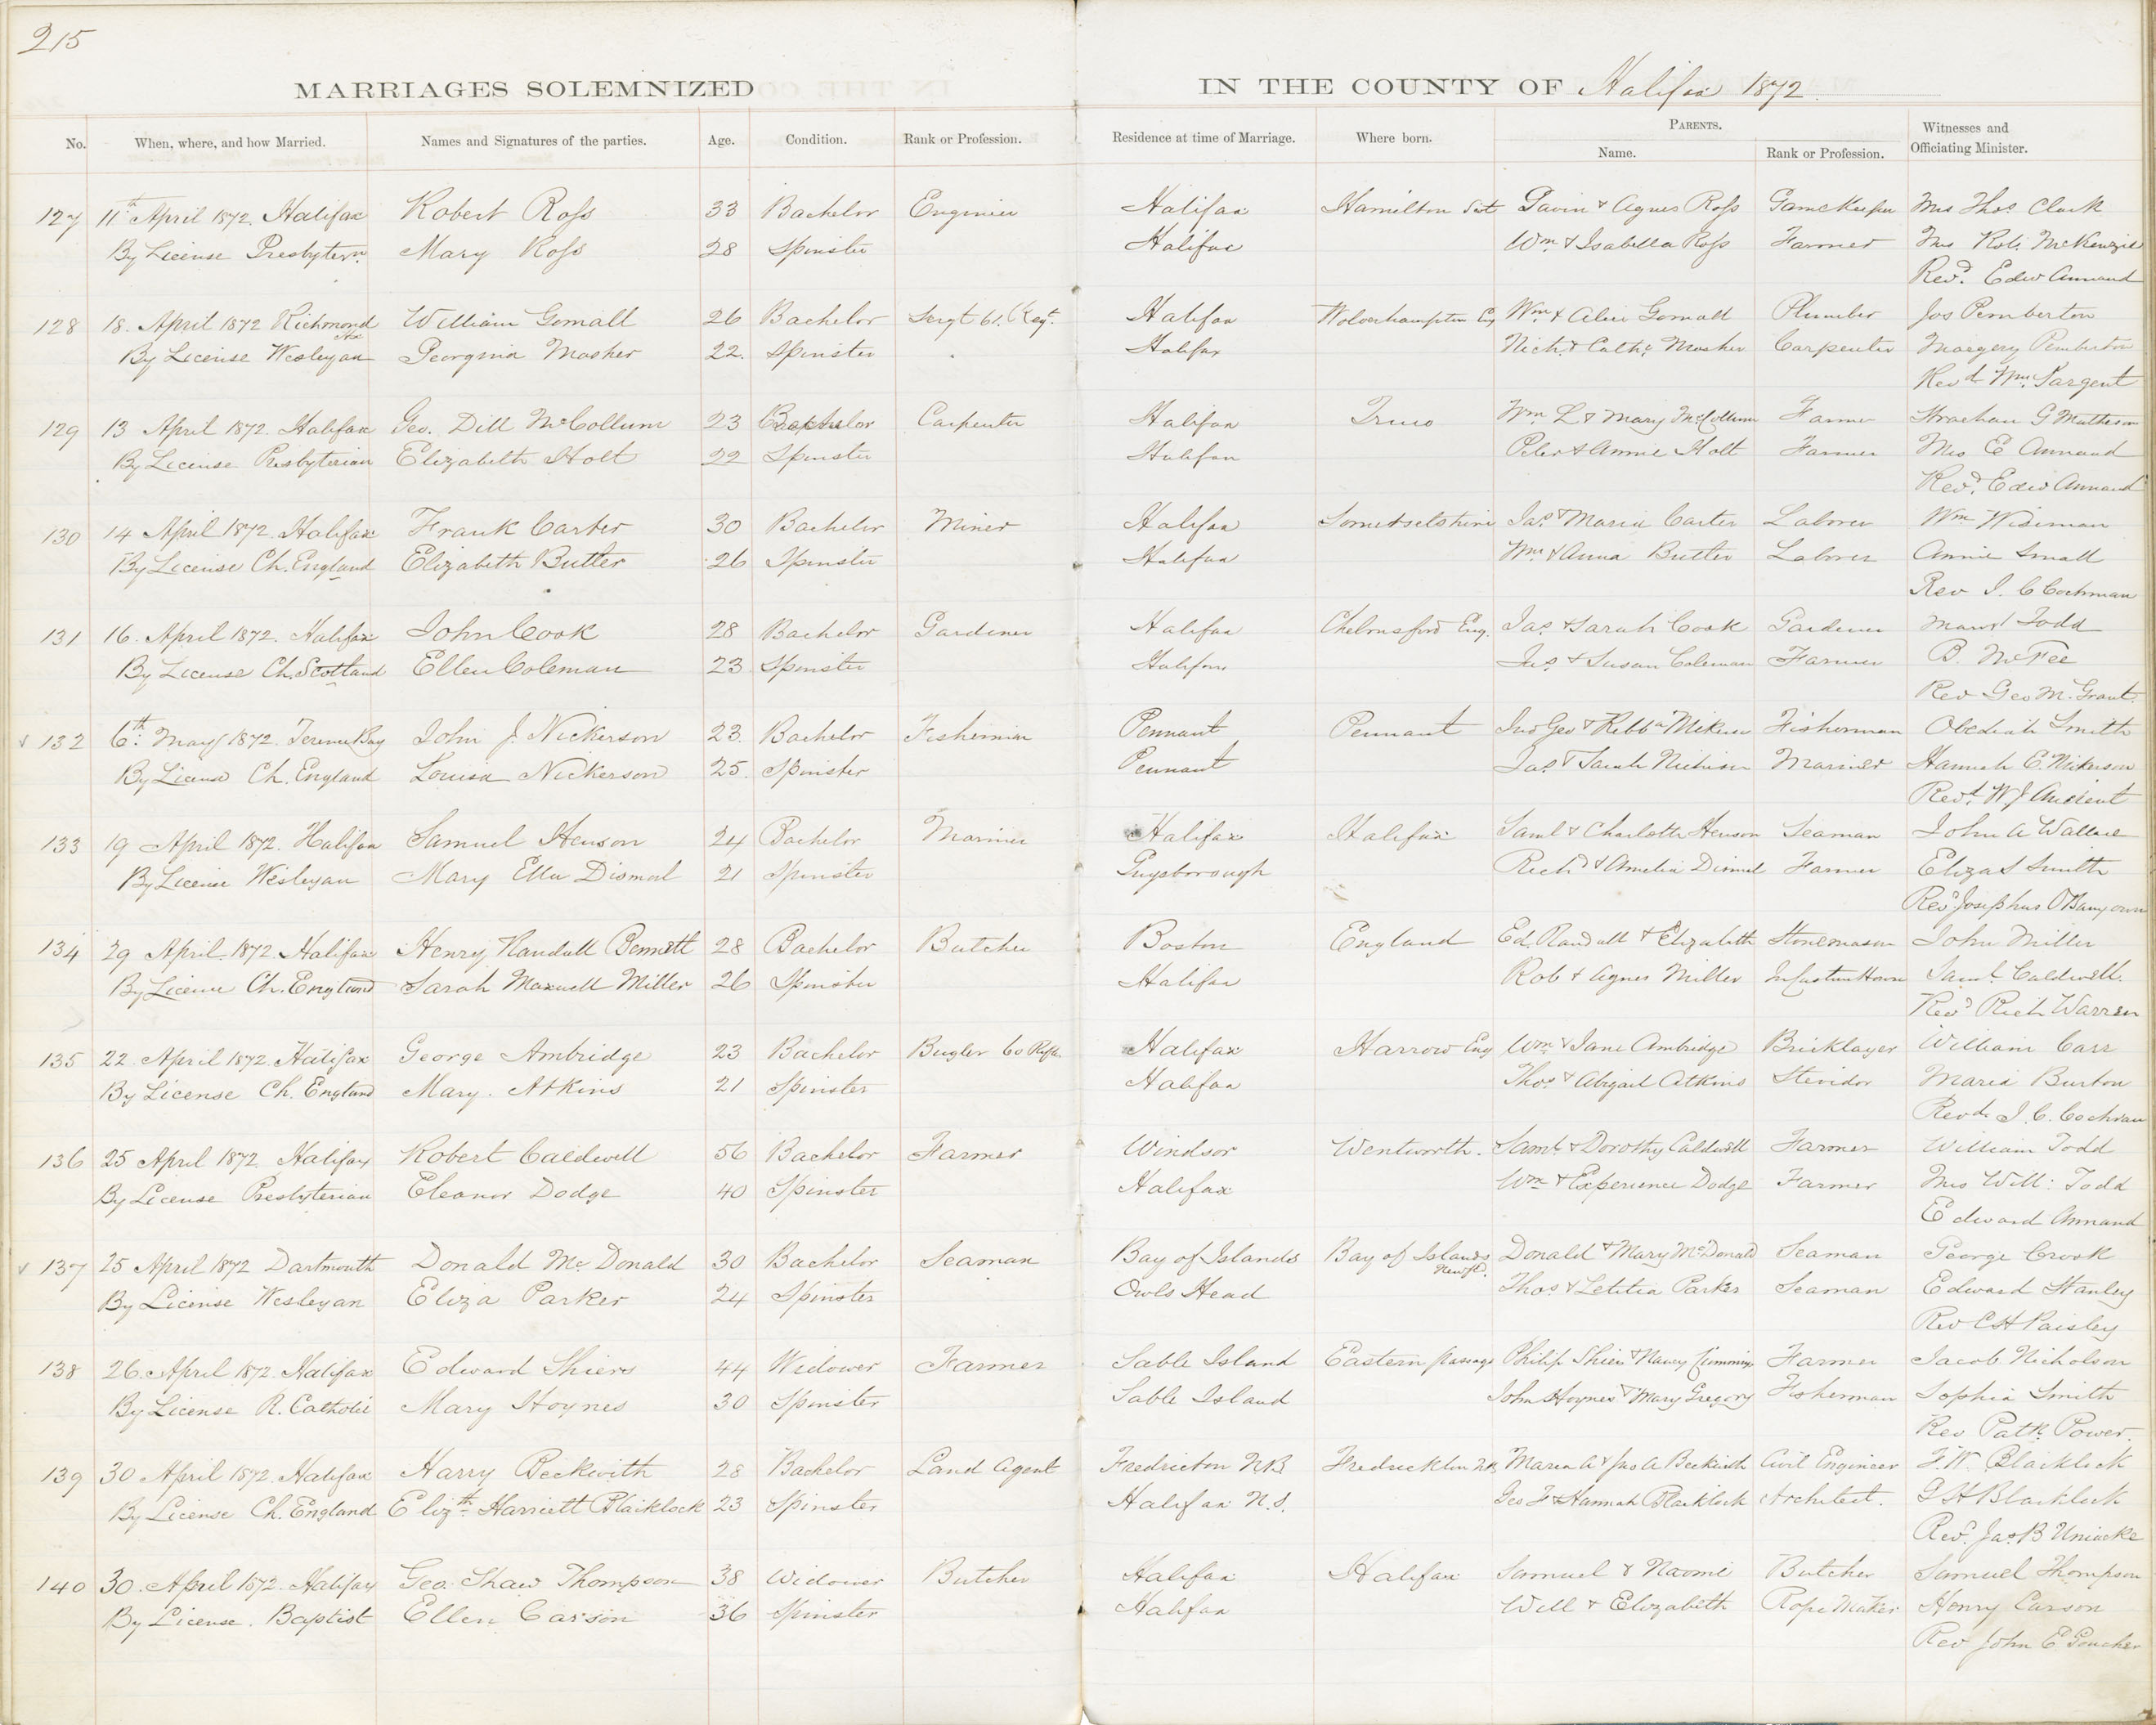 215
MARRIAGES SOLEMNIZED IN THE COUNTY OF Halifax 1872
No. When, where, and how Married. Names and Signatures of the parties. Age. Condition. Rank or Profession. Residence at time of Marriage. Where born. PARENTS. Name. Rank or Profession. Witnesses and Officiating Minister.
127 11th April 1872. Halifax Robert Ross 33 Bachelor Enginier Halifax Hamilton Gavin & Agnes Ross GameKeeper Mrs Thos. Clark
By License Presbytern. Mary Ross 28 Spinster Halifax Wm. & Isabella Ross Farmer Mrs Rob. McKenzie
Revd. Edw Annand
128 18. April 1872 Richmond William Gomall 26 Bachelor Sergt 61. Regt. Halifax Wolverhampton Eng Wm & Alice Gomall Plumber Jos Pemberton
By License Wesleyan Georgina Mosher 22. Spinster Halifax Nich. & Cath. Mosher Carpenter Margery Pemberton
Revd. Wm. Sargent
129 13 April 1872. Halifax Geo. Dill McCollum 23 Bachelor Carpenter Halifax Truro Wm L & Mary McCollum Farmer Strachan G Matheson
By License Presbyterian Elizabeth Holt 22 Spinster Halifax Peter & Annie Holt Farmer Mrs E Annand
Revd. Edw Annand
130 14 April 1872. Halifax Frank Carter 30 Bachelor Miner Halifax Jas. & Maria Carter Laborer Wm Wiseman
By License Ch. England Elizabeth Butler 26 Spinster Halifax Wm & Anna Butler Laborer Annie Small
Rev J. C Cochman
131 16. April 1872. Halifax John Cook 28 Bachelor Gardener Halifax Chelmsford Eng. Jas. & Sarah Cook Gardener Todd
By License Ch. Scotland Ellen Coleman 23 Spinster Halifax Jas. & Susan Coleman Farmer B. McFee
Rev Geo M. Grant.
132 6th. May 1872. Terence Bay John J. Nickerson 23. Bachelor Fisherman Pennant Pennant Jno Geo & Fisherman Obediah Smith
By License Ch. England Louisa Nickerson 25. Spinster Pennant Jas. & Sarah Mariner Hannah E. Nickerson
Revd. W J Ancient
133 19 April 1872. Halifax Samuel Henson 24 Bachelor Mariner Halifax Halifax Saml & Charlotte Henson Seaman John A Wallace
By License Wesleyan Mary Ella Dismal 21 Spinster Guysborough Richd & Amelia Dismal Farmer Eliza S Smith
Revd. Josephus O'Banyoun
134 29 April 1872. Halifax Henry Randall Bennett 28 Bachelor Butcher Boston England Ed. Randall & Elizabeth Stonemason John Miller
By License Ch. England Sarah Maxwell Miller 26 Spinster Halifax Rob & Agnes Miller In Custom House Saml. Caldwell.
Revd Rich Warren
135 22. April 1872. Halifax George Ambridge 23 Bachelor Bugler 60 Rifls. Halifax Harrow Eng Wm. & Jane Ambridge Bricklayer William Carr
By License Ch. England Mary. Atkins 21 Spinster Halifax Thos. & Abigail Atkins Stevidor Maria Burton
Revd. J. C. Cochran
136 25 April 1872. Halifax Robert Caldwell 56 Bachelor Farmer Windsor Wentworth. Saml. & Dorothy Caldwell Farmer William Todd
By License Presbyterian Eleanor Dodge 40 Spinster Halifax Wm & Experience Dodge Farmer Mrs Will: Todd
Edward Annand
137 25 April 1872 Dartmouth Donald Mc Donald 30 Bachelor Seaman Bay of Islands Bay of Islands Newfd. Donald & Mary McDonald Seaman George Crook
By License Wesleyan Eliza Parker 24 Spinster Owls Head Thos & Letitia Parker Seaman Edward Stanley
Rev C H Paisley
138 26. April 1872. Halifax Edward Shiers 44 Widower Farmer Sable Island Eastern Passage Philip Shiers & Nancy Cumming Farmer Jacob Nicholson
By License R. Catholic Mary Hoynes 30 Spinster Sable Island John Hoynes & Mary Gregory Fisherman Sophia Smith
Rev Patk. Power.
139 30 April 1872. Halifax Harry Beckwith 28 Bachelor Land Agent Fredricton N.B Fredrickton N.B Maria A & Jno A Beckwith Civil Engineer F. W. Blaiklock
By License Ch. England Elizth. Harriett Blaiklock 23 Spinster Halifax N.S. Geo F & Hannah Blaiklock Architect. G H Blaiklock
Revd. Jas. B Uniacke
140 30. April 1872. Halifax Geo. Shaw Thompson 38 Widower Butcher Halifax Halifax Samuel & Naomi Butcher Samuel Thompson
By License. Baptist Ellen Carson 36 Spinster Halifax Will & Elizabeth Rope Maker Henry Carson
Rev John E Goucher